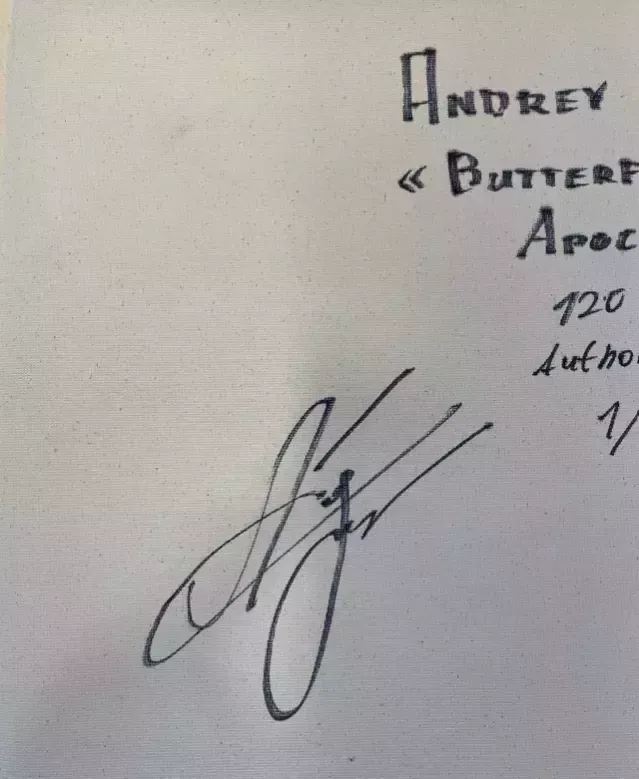 ANDREY
« BUTTERF
APOC
120
Autho
1/